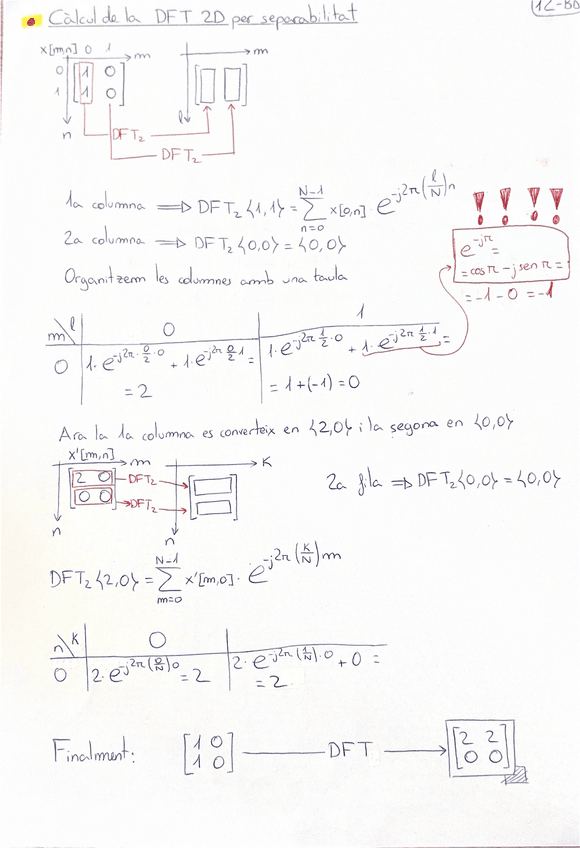 12-BD
Càlcul de la DFT 2D per separabilitat
x[m,n] 0 1 m m
0 [1 0]
1 [1 0]
n l
DFT₂
DFT₂
1a columna ⟹ DFT₂{1,1} = Σ_{n=0}^{N-1} x[0,n] e^{-j2π(l/N)n}
2a columna ⟹ DFT₂{0,0} = {0,0}
Organitzem les columnes amb una taula
! ! ! !
e^{-jπ} =
= cos π - j sen π =
= -1 - 0 = -1
m\l 0 1
0 1·e^{-j2π·0/2·0} + 1·e^{-j2π·0/2·1} = 1·e^{-j2π·1/2·0} + 1·e^{-j2π·1/2·1} =
= 2 = 1+(-1) = 0
Ara la 1a columna es converteix en {2,0} i la segona en {0,0}
x'[m,n] m K
[2 0] DFT₂
[0 0] DFT₂
n n
2a fila ⟹ DFT₂{0,0} = {0,0}
DFT₂{2,0} = Σ_{m=0}^{N-1} x'[m,0] · e^{-j2π(K/N)m}
n\K 0
0 2·e^{-j2π(0/N)0} = 2 2·e^{-j2π(1/N)·0} + 0 =
= 2
Finalment: [1 0; 1 0] DFT [2 2; 0 0]